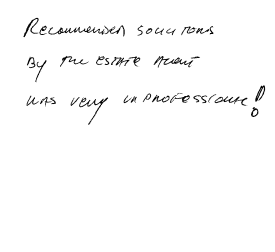 Recommended solicitors
By the estate agent
was very unprofessional!